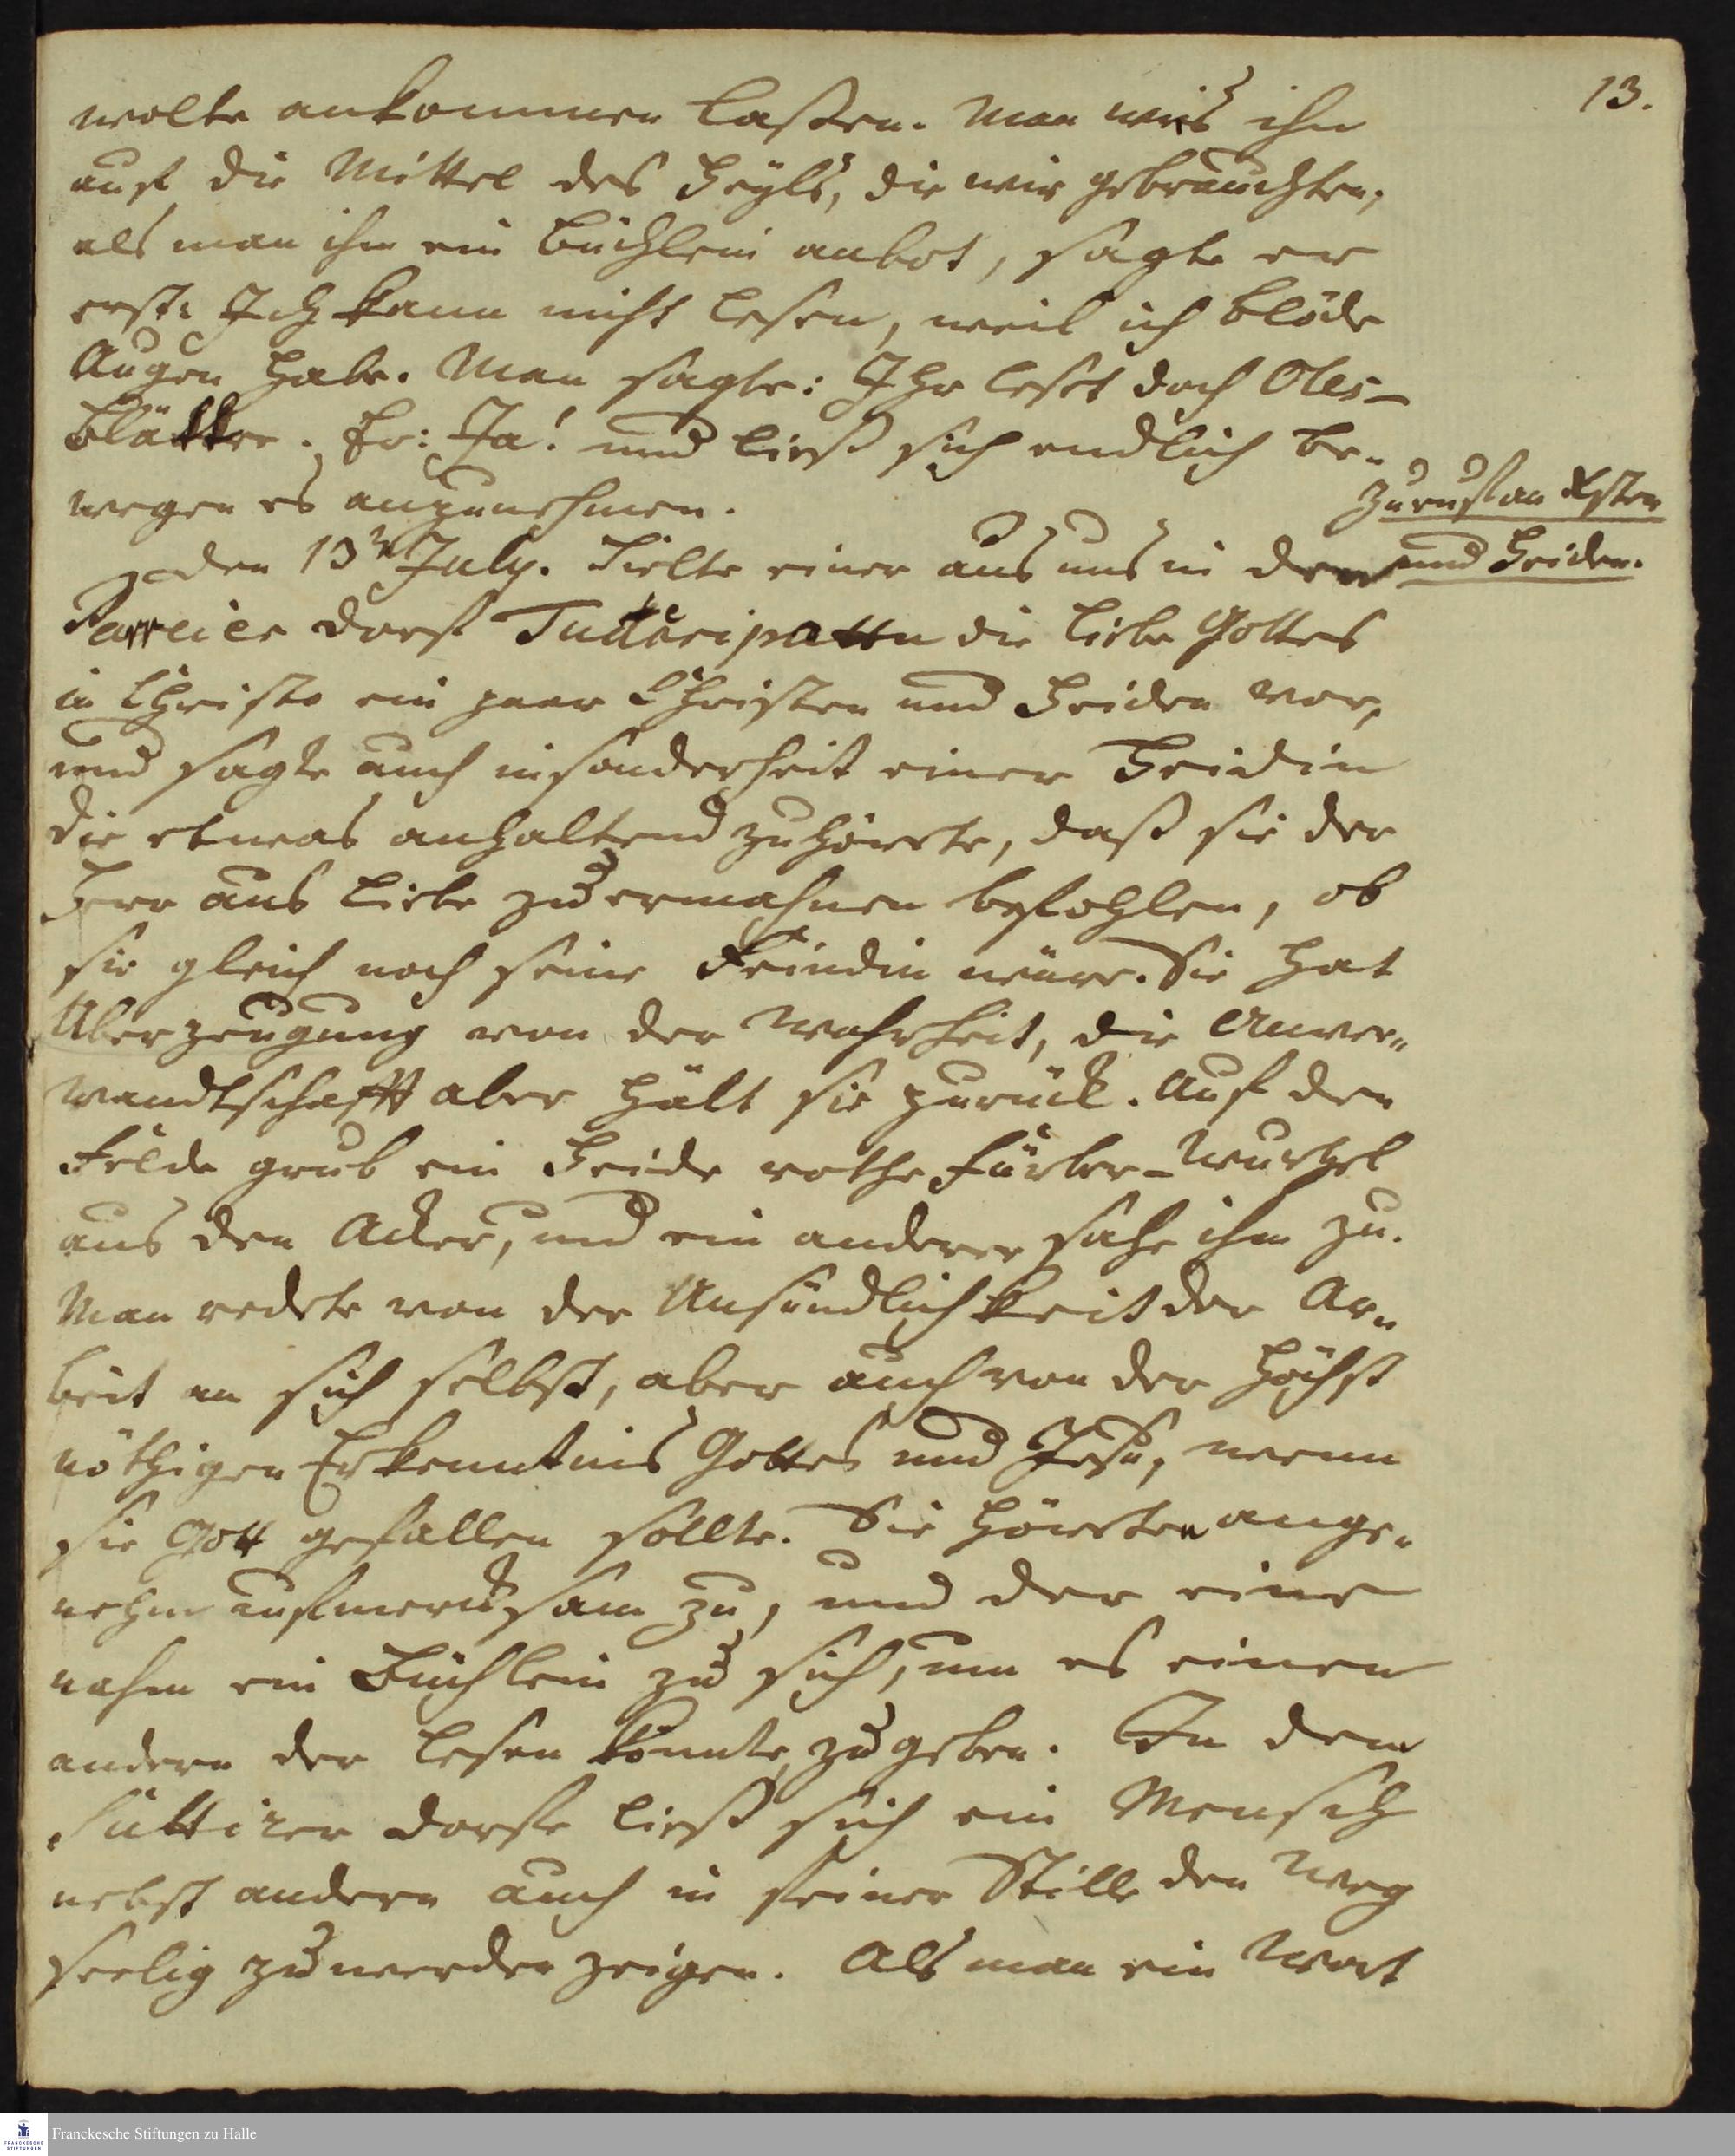 13.
wolte ankommen laßen. Man wies ihn
auf die Mittel des Heyls, die wir gebrauchten,
als man ihm ein Büchlein anbot, sagte er
erst: Ich kann nicht lesen, weil ich blöde
Augen habe. Man sagte: Ihr leset doch Oles-
blätter. Er: Ja! und ließ sich endlich be-
wegen es anzunehmen.
Zuruf an Xsten
und Heiden.
den 13ten July. hielte einer aus uns in dem
Parreier dorf die liebe Gottes
in Christo ein paar Christen und Heiden vor,
und sagte auch insonderheit einer Heidin
die etwas anhaltend zuhörete, daß sie der
Herr aus liebe zu ermahnen befohlen, ob
sie gleich noch seine Feindin wäre. Sie hat
Uberzeugung von der Wahrheit, die Anver-
wandtschafft aber hält sie zurück. Auf den
Felde grub ein Heide rothe Färber-Wurtzel
aus den Acker, und ein anderer sahe ihm zu.
Man redete von der Unsündlichkeit der Ar-
beit an sich selbst, aber auch von der höchst
nöthigen Erkenntnis Gottes und Jesu, wenn
sie Gott gefallen sollte. Sie höreten ange-
nehm aufmercksam zu, und der eine
nahm ein Büchlein zu sich, um es einen
andern der lesen könnte, zu geben. In dem
dorfe ließ sich ein Mensch
nebst andern auch in seiner Stille den Weg
seelig zu werden zeigen. Als man ein Wort
Franckesche Stiftungen zu Halle